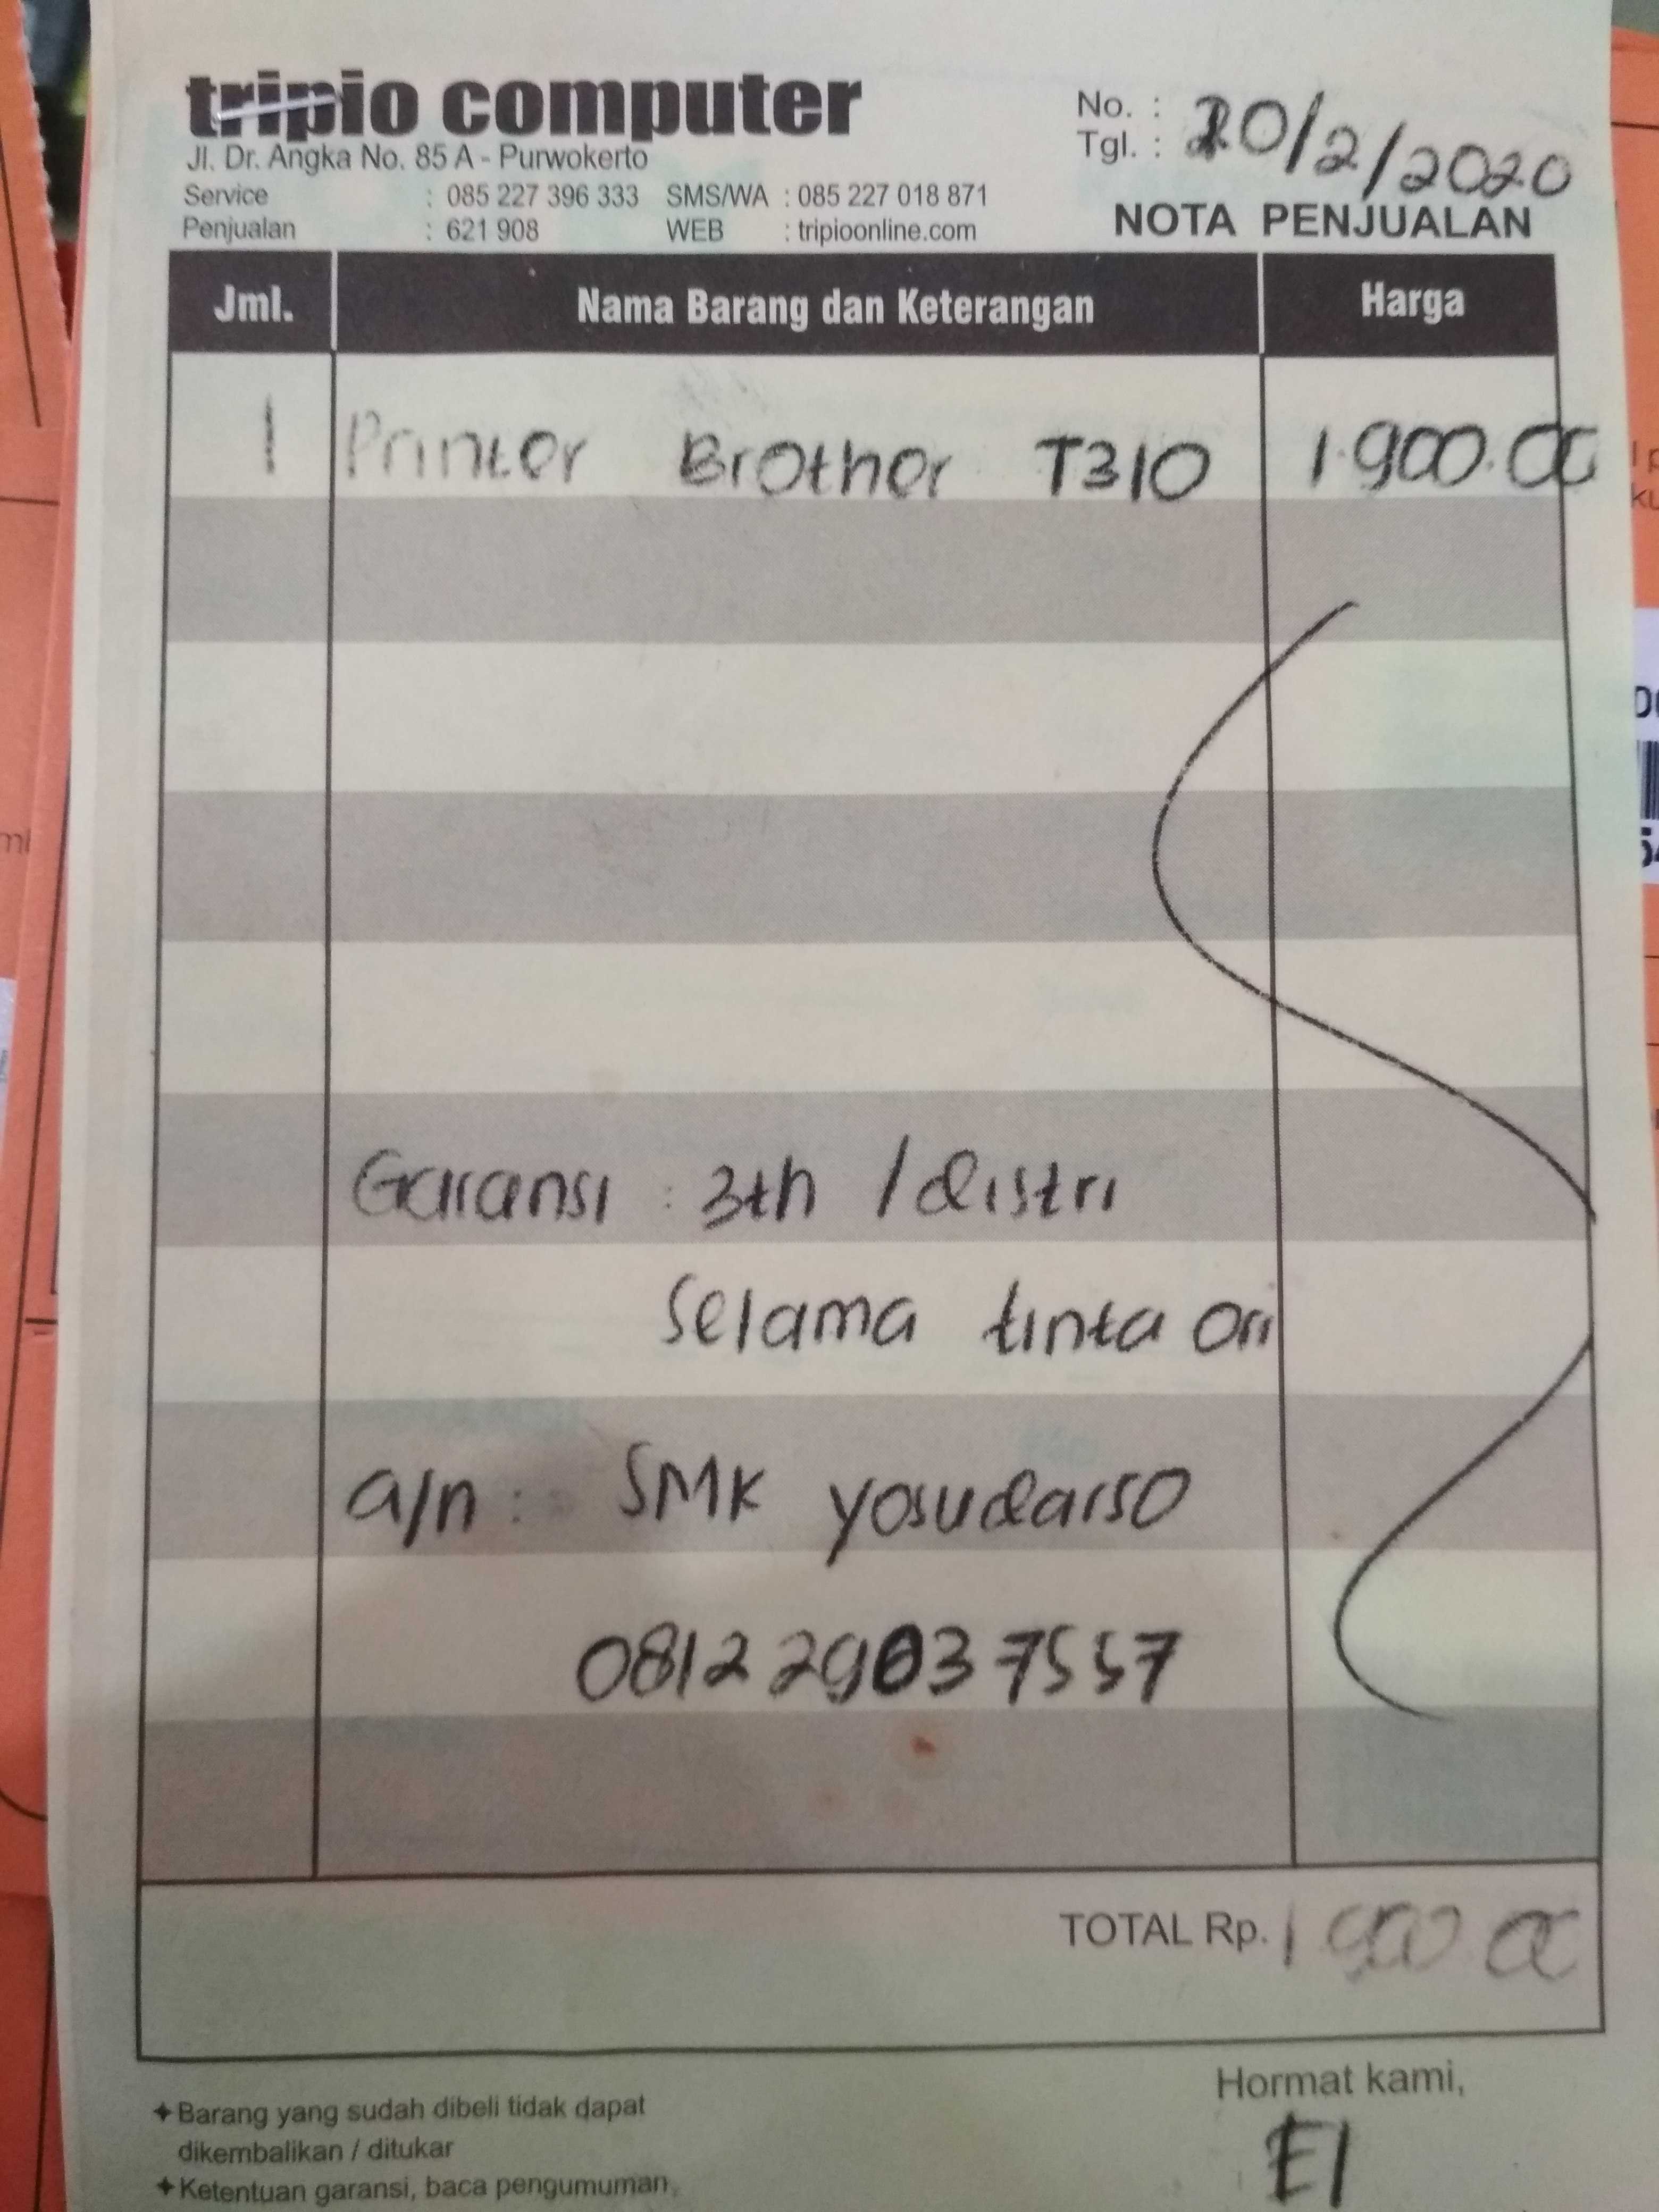 tripio computer
Jl. Dr. Angka No. 85 A - Purwokerto
Service : 085 227 396 333 SMS/WA : 085 227 018 871
Penjualan : 621 908 WEB : tripioonline.com
No. :
Tgl. : 20/2/2020
NOTA PENJUALAN
Jml. Nama Barang dan Keterangan Harga
1 Printer Brother T310 1.900.00
Garansi : 3th /distri
Selama tinta ori
a/n : SMK yosudarso
081229037557
TOTAL Rp. 1 900 00
Hormat kami,
El
✦Barang yang sudah dibeli tidak dapat
dikembalikan / ditukar
✦Ketentuan garansi, baca pengumuman